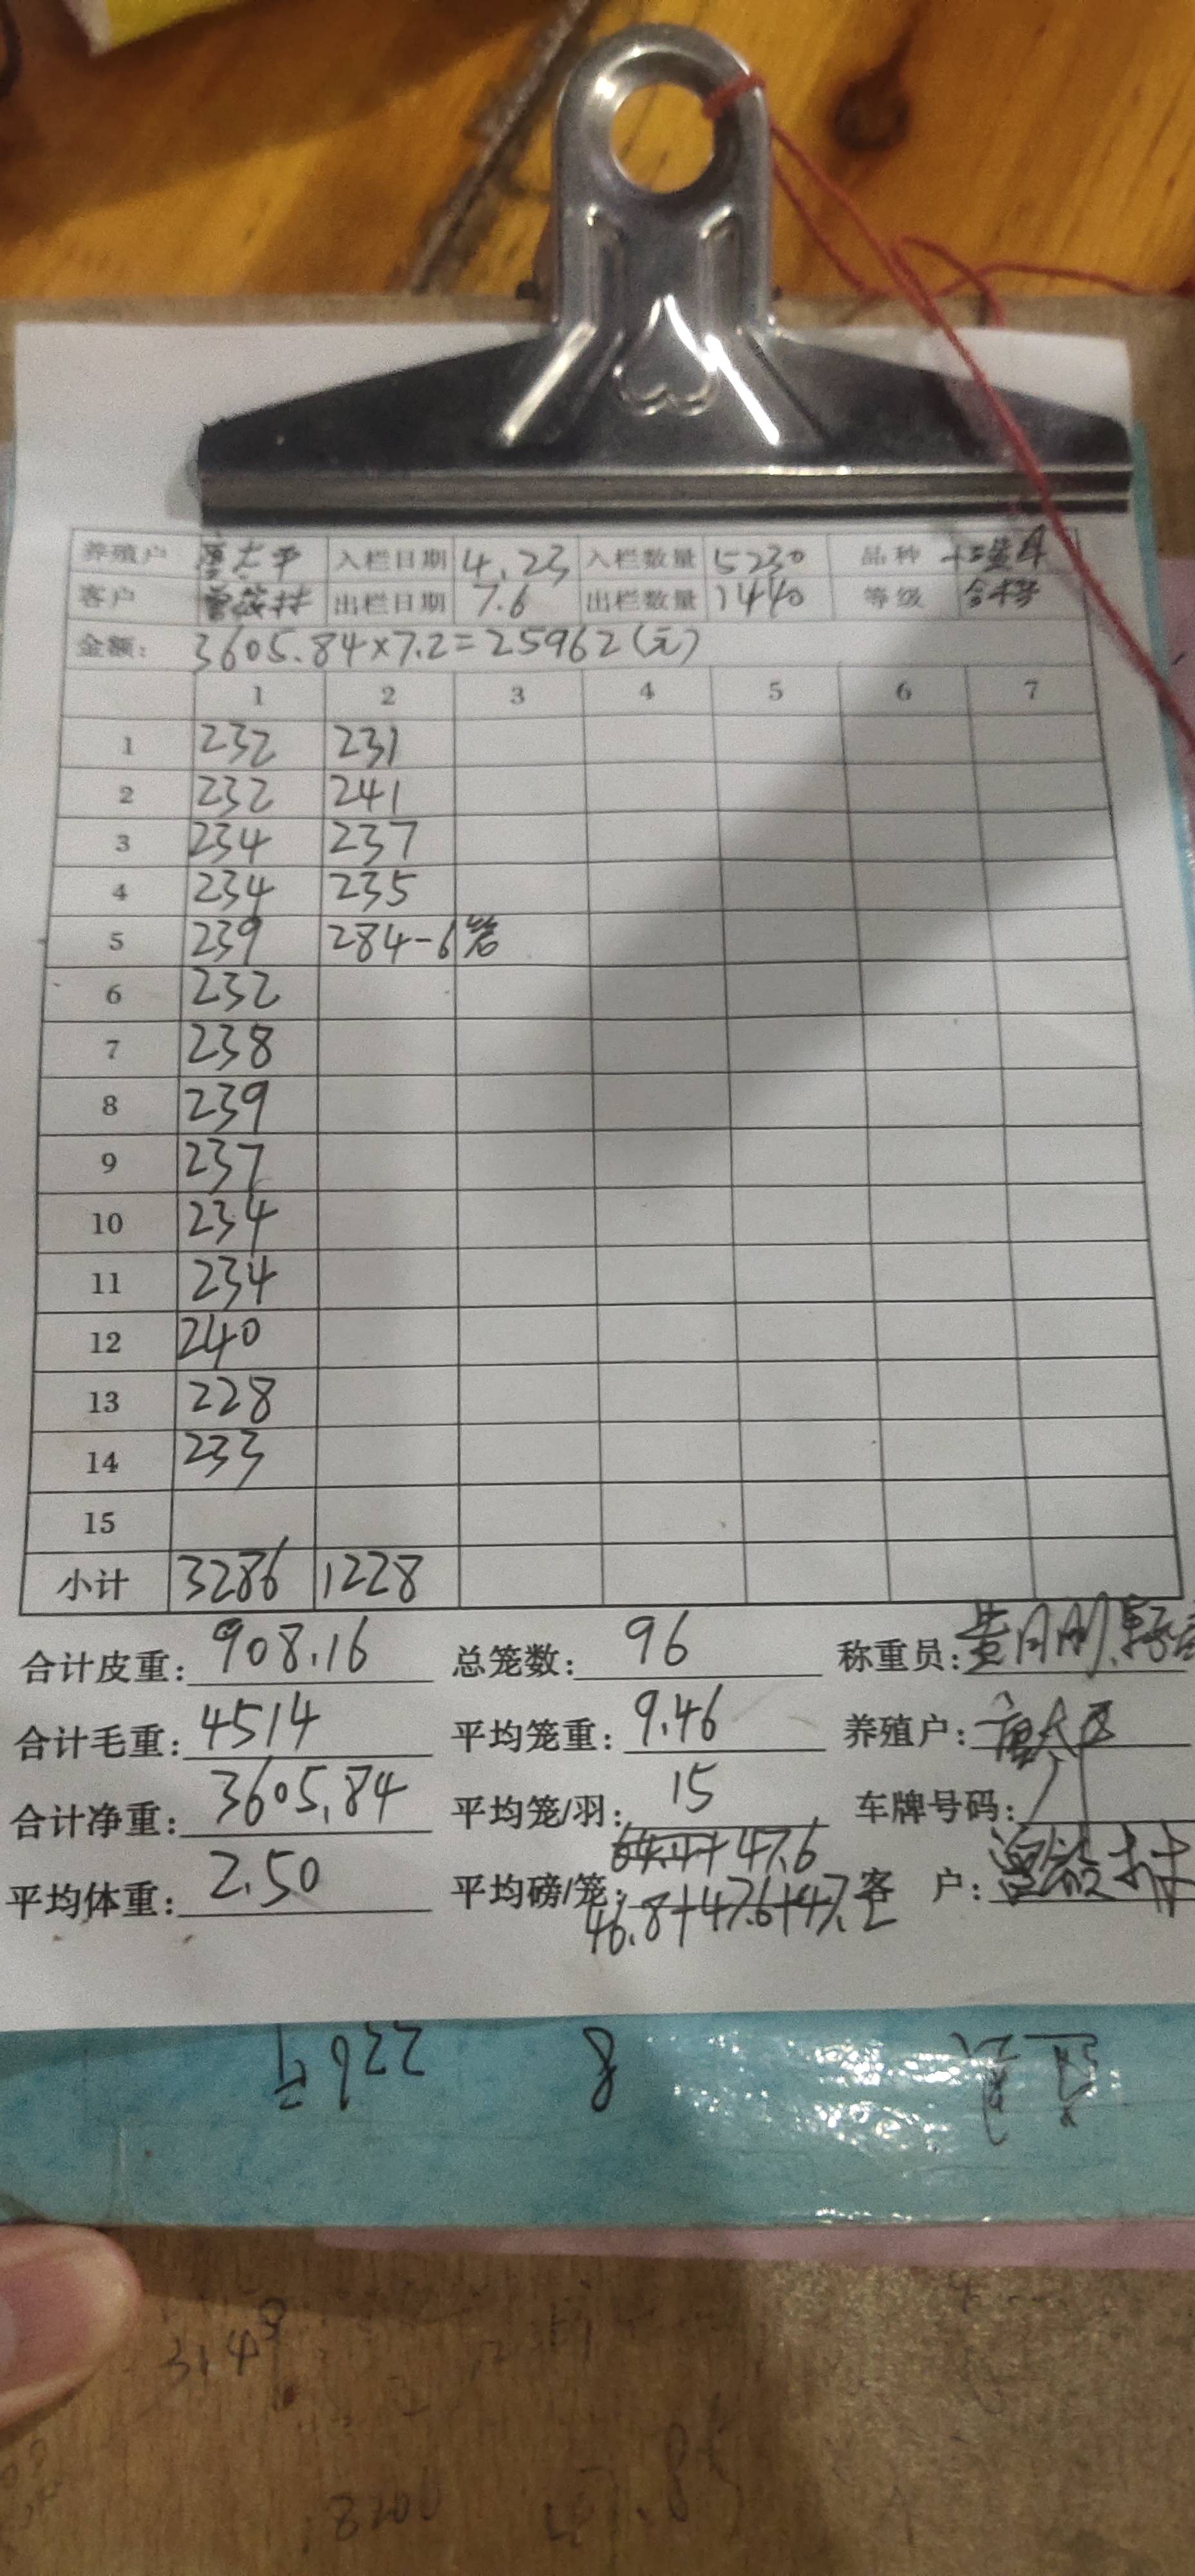 养殖户 太平 入栏日期 4.23 入栏数量 5230 品种
客户 出栏日期 7.6 出栏数量 1440 等级 合格
金额: 3605.84×7.2=25962(元)
1 2 3 4 5 6 7
1 232 231
2 232 241
3 234 237
4 234 235
5 239 284-6笼
6 232
7 238
8 239
9 237
10 234
11 234
12 240
13 228
14 233
15
小计 3286 1228
合计皮重: 908.16 总笼数: 96 称重员:
合计毛重: 4514 平均笼重: 9.46 养殖户:
合计净重: 3605.84 平均笼/羽: 15 车牌号码:
平均体重: 2.50 平均磅/笼: +47.6 客 户:
46.8+47.6+47.2
226
8
3149
8200